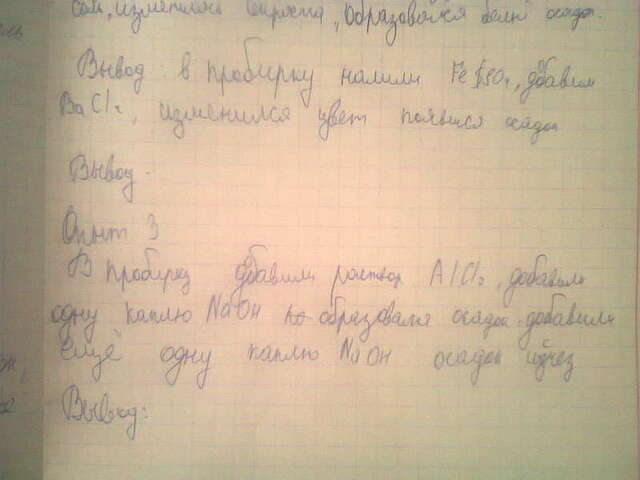 изменилась окраска, образовался белый осадок.
Вывод в пробирку налили FeSO₄, добавили
BaCl₂, изменился цвет появился осадок
Вывод.
Опыт 3
В пробирку добавили раствор AlCl₃, добавили
одну каплю NaOH образовался осадок. добавили
ещё одну каплю NaOH осадок исчез
Вывод: